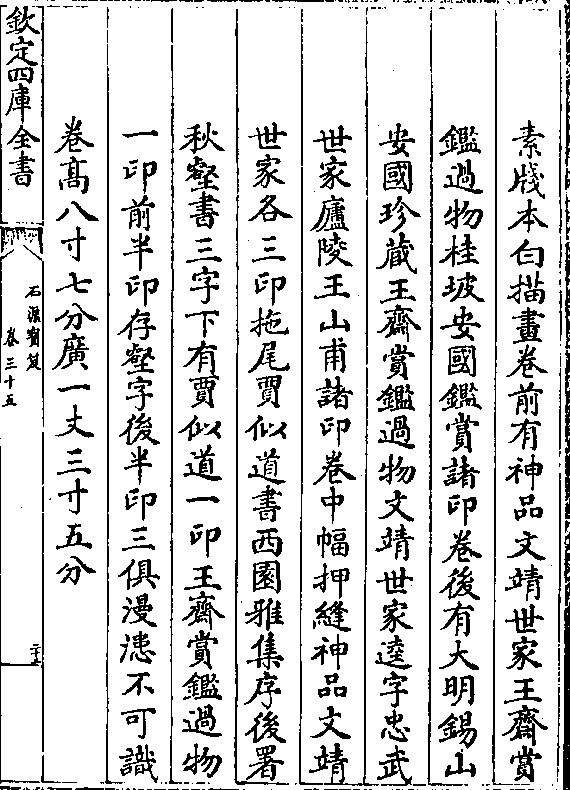 素牋本白描畫卷前有神品文靖世家王齋賞
鑑過物桂坡安國鑑賞諸印卷後有大明錫山
安國珍藏王齋賞鑑過物文靖世家逵字忠武
世家廬陵王山甫諸印卷中幅押縫神品文靖
世家各三印拖尾賈似道書西園雅集序後署
秋壑書三字下有賈似道一印王齋賞鑑過物
一印前半印存壑字後半印三俱漫漶不可識
卷高八寸七分廣一丈三寸五分
欽定四庫全書
石渠寶笈
卷三十五